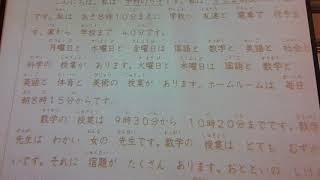 こんにちは。私は
です。私は あさ8時10分に 学校へ 友達と 電車で 行きま
す。家から 学校まで 40分です。
月曜日と 水曜日と 金曜日は 国語と 数学と 英語と 社会と
科学の 授業が あります。火曜日と 木曜日は 国語と 数学と
英語と 体育と 美術の 授業が あります。ホームルームは 毎日
朝8時15分からです。
数学の 授業は 9時30分から 10時20分までです。数学の
先生は わかい 女の 先生です。数学の 授業は とても むずか
です。それに 宿題が たくさん あります。おとといの しけ